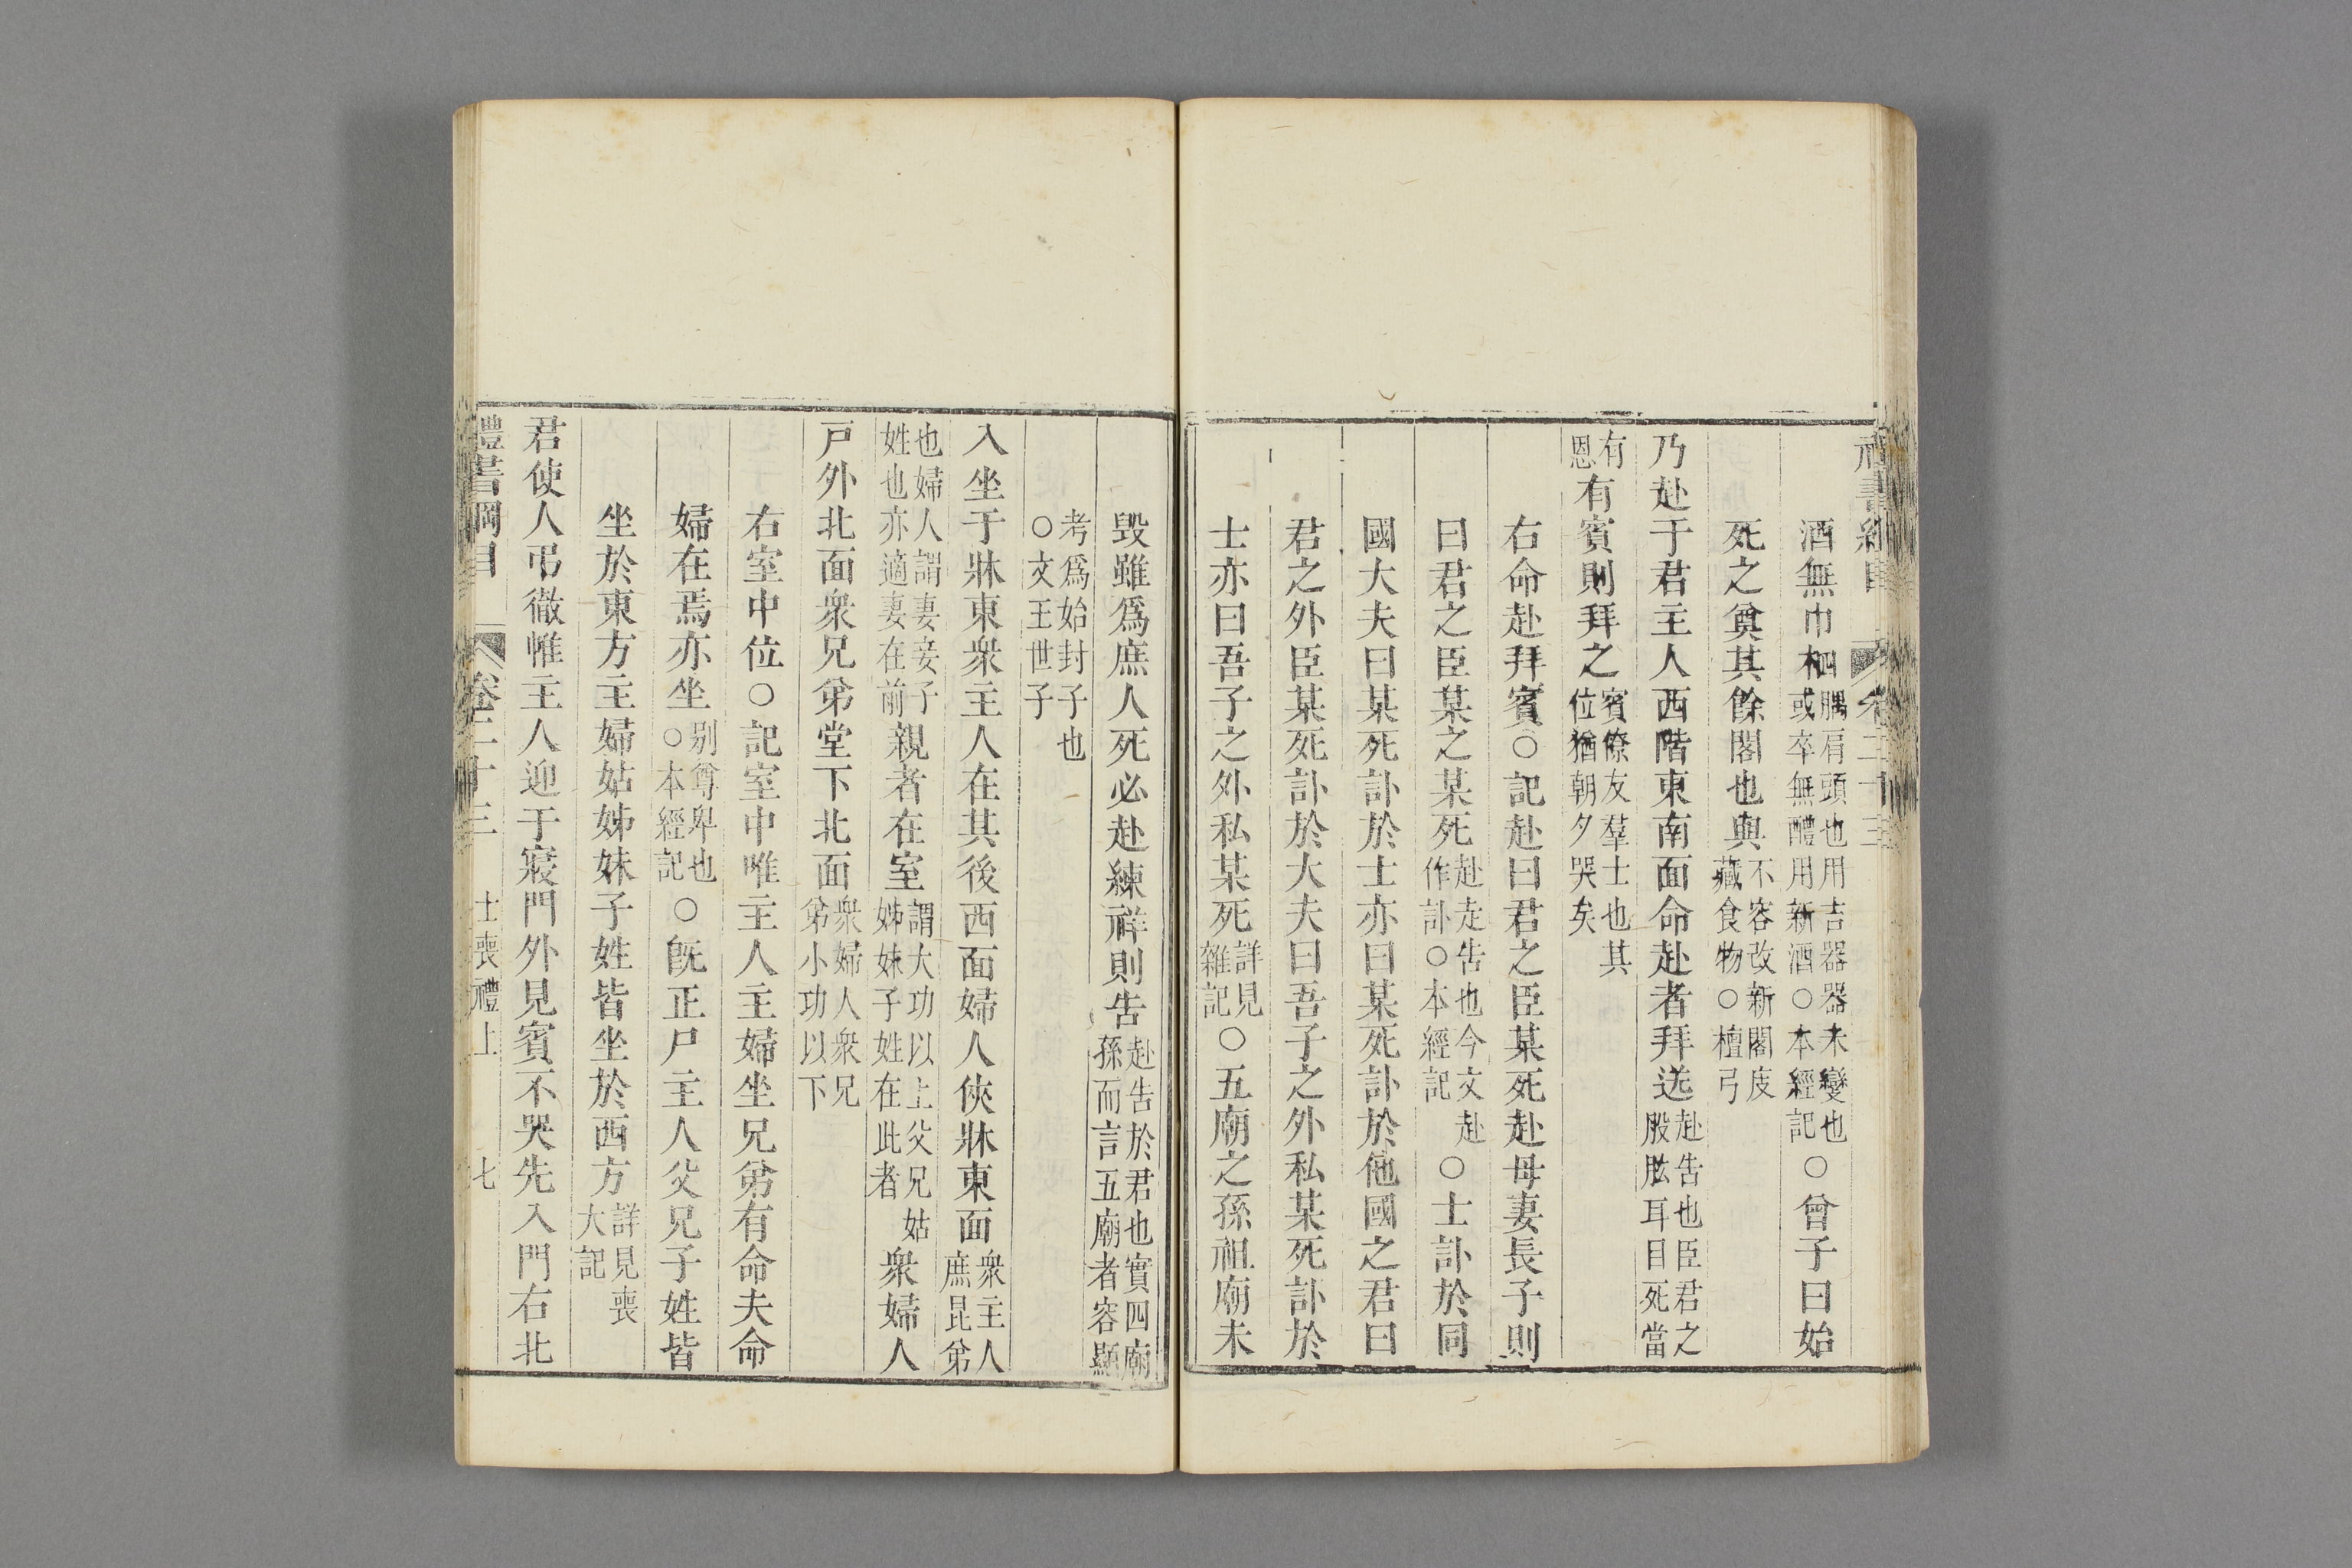 禮書綱目 卷二十三
酒無巾柶腢肩頭也用吉器器未變也或卒無醴用新酒○本經記○曾子曰始
死之奠其餘閣也與不容改新閣庋藏食物○檀弓
乃赴于君主人西階東南面命赴者拜送赴告也臣君之股肱耳目死當
有恩有賓則拜之賓僚友羣士也其位猶朝夕哭矣
右命赴拜賓○記赴曰君之臣某死赴母妻長子則
曰君之臣某之某死赴走告也今文赴作訃○本經記○士訃於同
國大夫曰某死訃於士亦曰某死訃於他國之君曰
君之外臣某死訃於大夫曰吾子之外私某死訃於
士亦曰吾子之外私某死詳見雜記○五廟之孫祖廟未
毀雖爲庶人死必赴練祥則告赴告於君也實四廟孫而言五廟者容顯
考爲始封子也○文王世子
入坐于牀東衆主人在其後西面婦人俠牀東面衆主人庶昆弟
也婦人謂妻妾子姓也亦適妻在前親者在室謂大功以上父兄姑姊妹子姓在此者衆婦人
戸外北面衆兄弟堂下北面衆婦人衆兄弟小功以下
右室中位○記室中唯主人主婦坐兄弟有命夫命
婦在焉亦坐别尊卑也○本經記○旣正尸主人父兄子姓皆
坐於東方主婦姑姊妹子姓皆坐於西方詳見喪大記
君使人弔徹帷主人迎于寢門外見賓不哭先入門右北
禮書綱目 卷二十三 士喪禮上 七